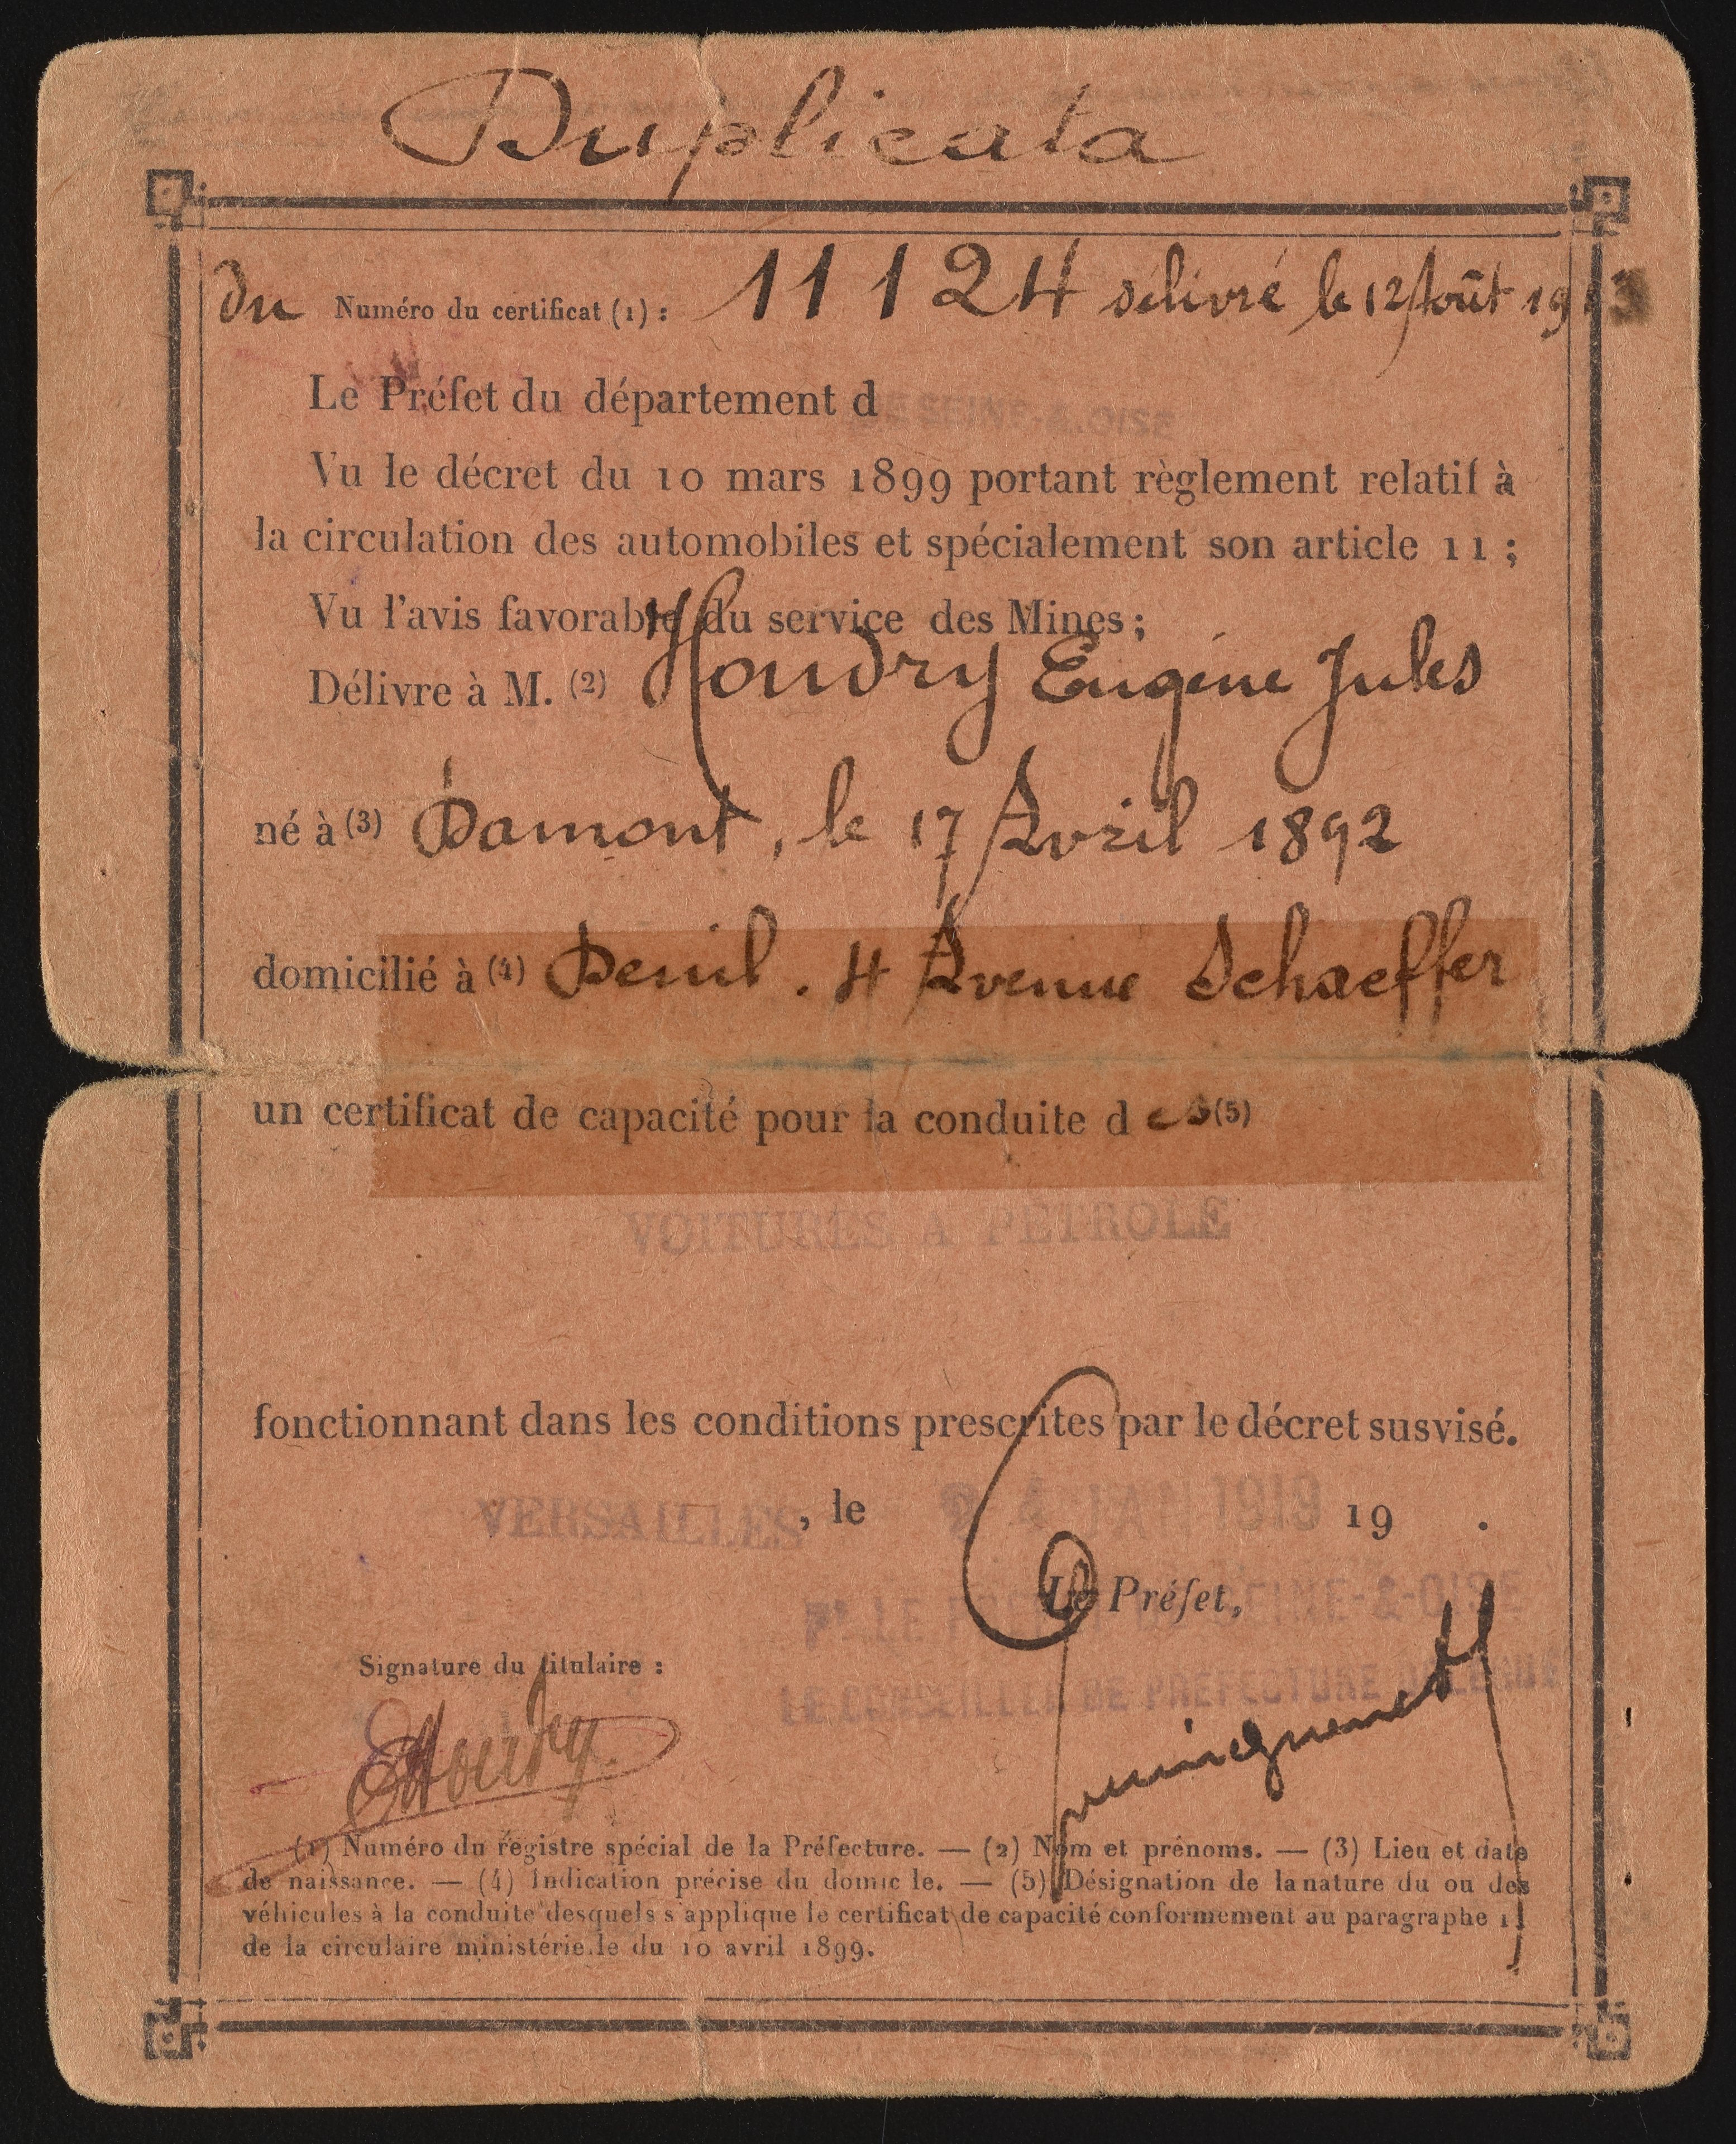 Duplicata
du Numéro du certificat (1) : 11124 délivré le 12 Août 1913
Le Préfet du département d E SEINE-&-OISE
Vu le décret du 10 mars 1899 portant règlement relatif à
la circulation des automobiles et spécialement son article 11 ;
Vu l'avis favorable du service des Mines ;
Délivre à M. (2) Houdry Eugène Jules
né à (3) Domont, le 17 Avril 1892
domicilié à (4) Deuil . 4 Avenue Schaeffer
un certificat de capacité pour la conduite d es (5)
VOITURES A PETROLE
fonctionnant dans les conditions prescrites par le décret susvisé.
VERSAILLES , le 24 JAN 1919 19 .
Le Préfet,
Pr LE PRÉFET DE SEINE-&-OISE
LE CONSEILLER DE PRÉFECTURE DÉLÉGUÉ
Signature du titulaire :
EHoudry
(1) Numéro du registre spécial de la Préfecture. — (2) Nom et prénoms. — (3) Lieu et date
de naissance. — (4) Indication précise du domic le. — (5) Désignation de la nature du ou des
véhicules à la conduite desquels s'applique le certificat de capacité conformement au paragraphe 1
de la circulaire ministérie.le du 10 avril 1899.